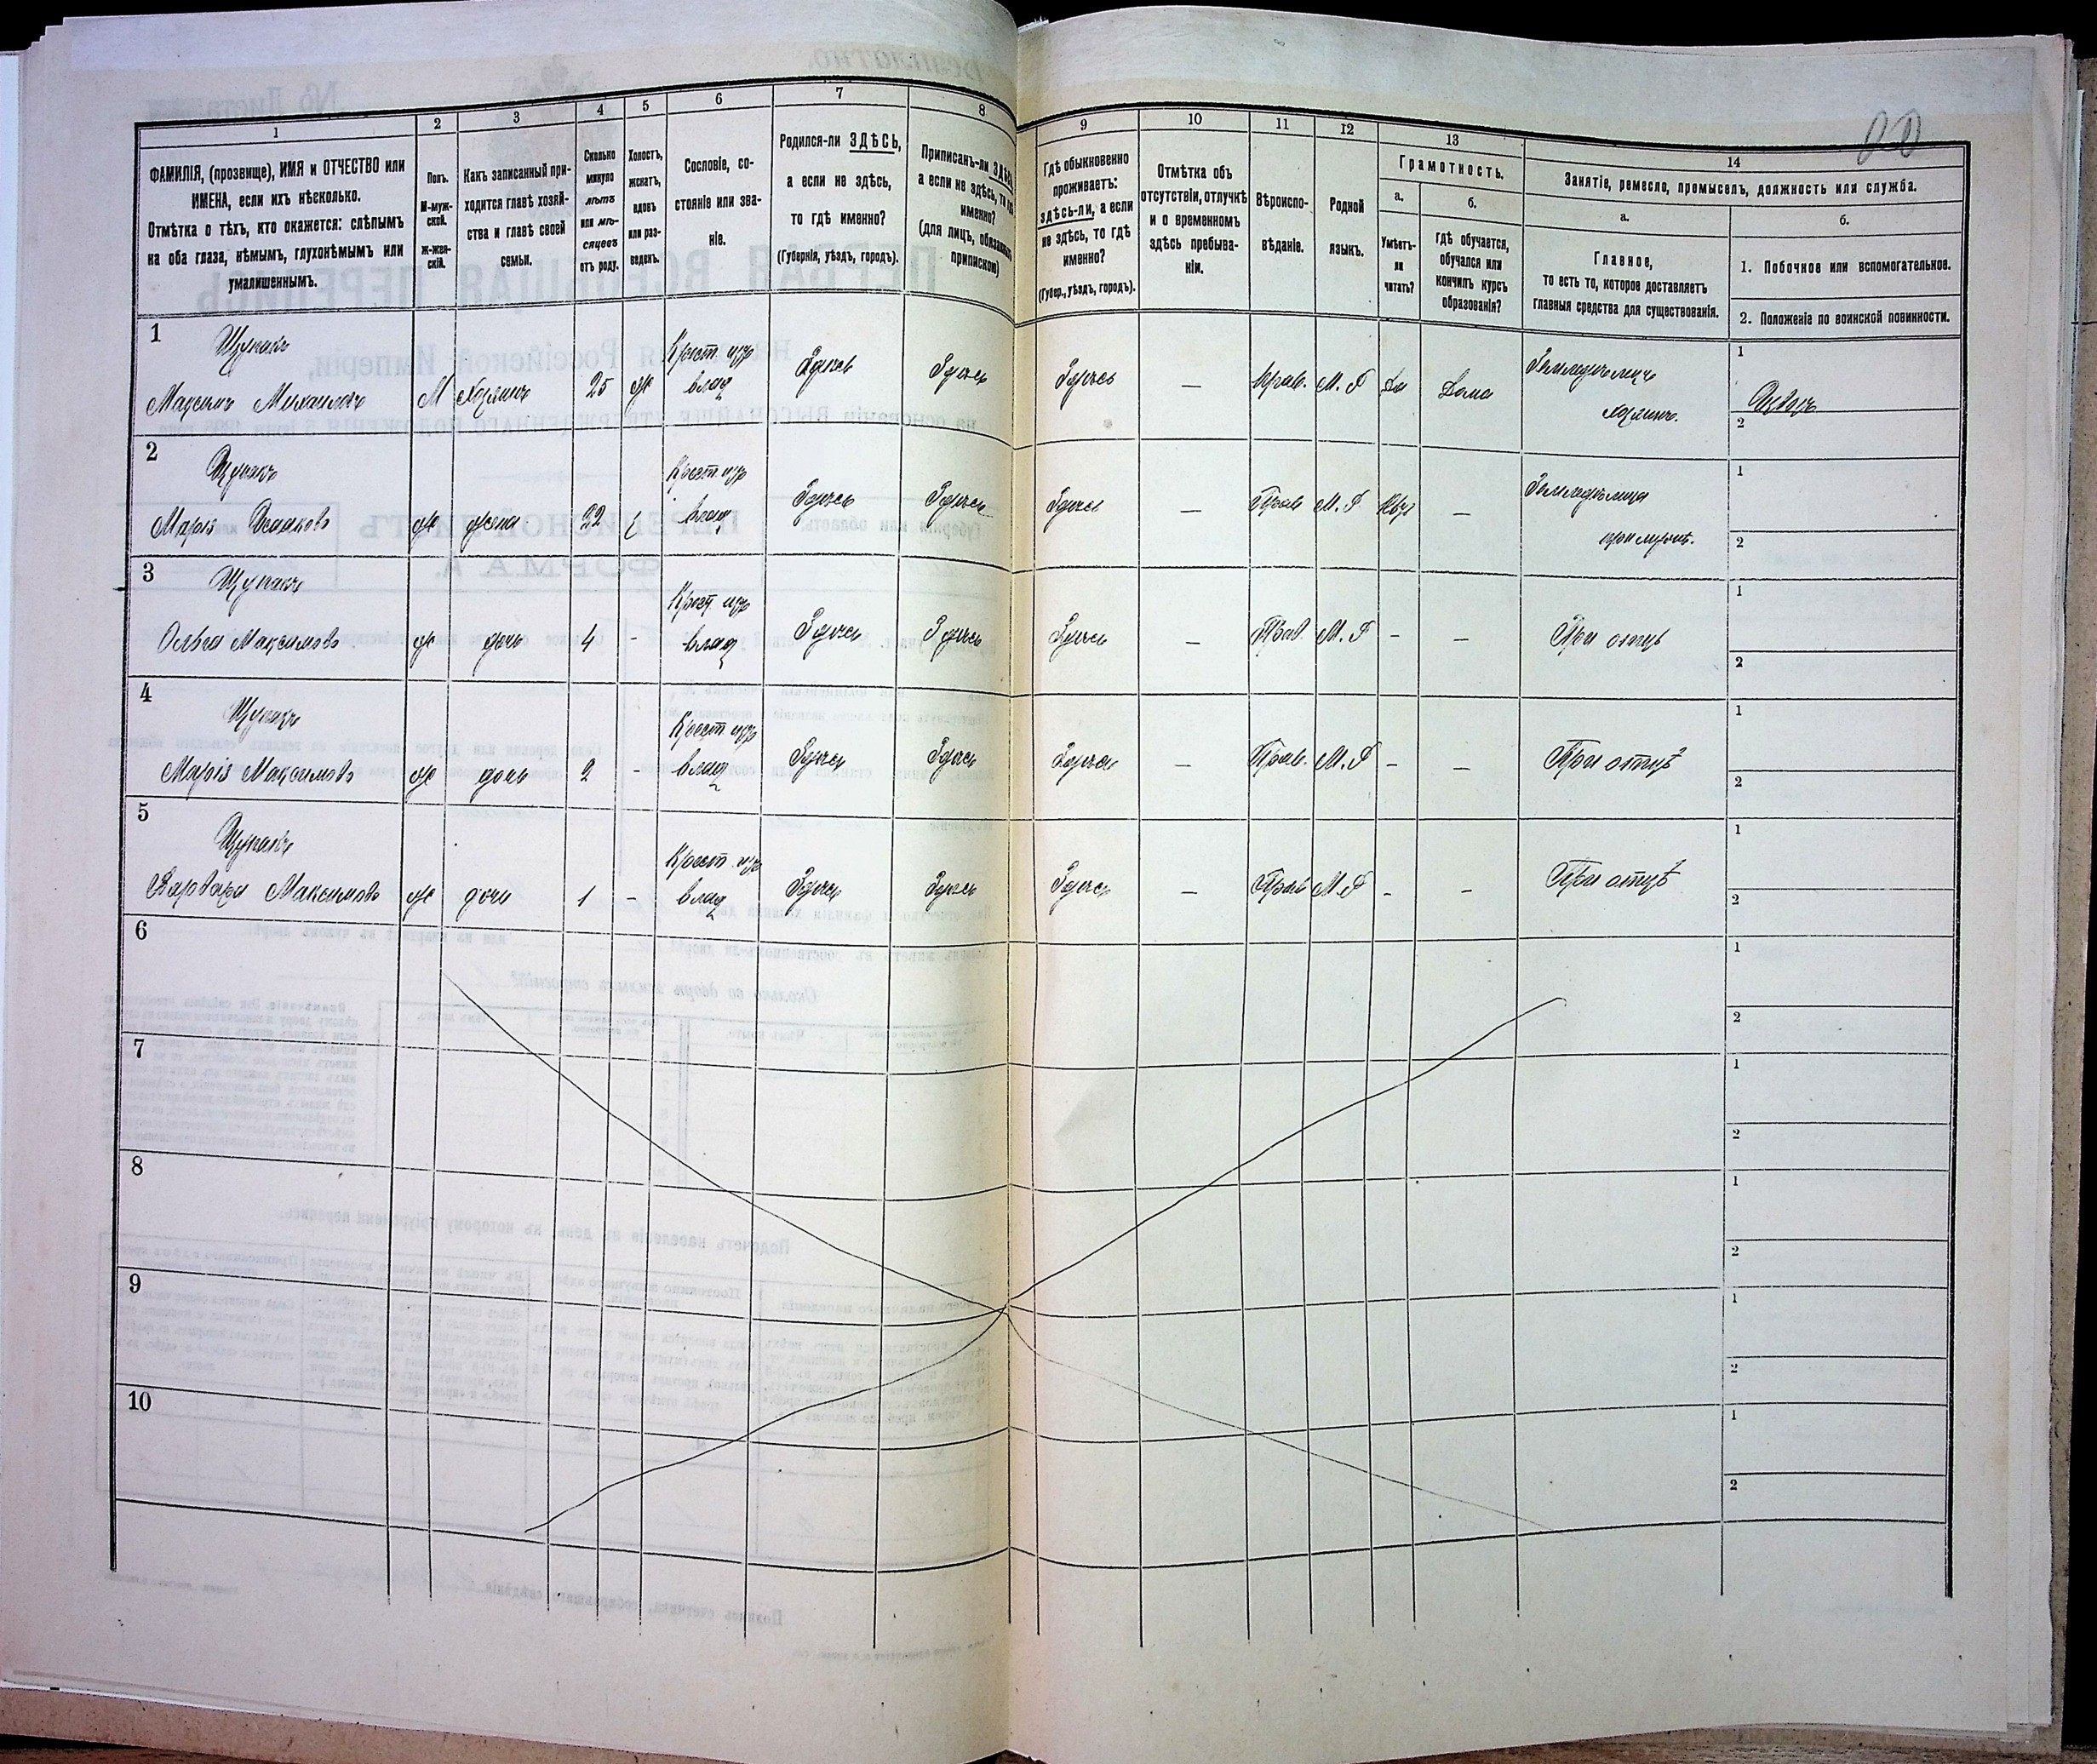 20
1
2
3
4
5
6
7
8
9
10
11
12
13
14
ФАМИЛІЯ, (прозвище), ИМЯ и ОТЧЕСТВО или
ИМЕНА, если ихъ нѣсколько.
Отмѣтка о тѣхъ, кто окажется: слѣпымъ
на оба глаза, нѣмымъ, глухонѣмымъ или
умалишеннымъ.
Полъ.
М-муж-
ской.
Ж-жен-
скій.
Какъ записанный при-
ходится главѣ хозяй-
ства и главѣ своей
семьи.
Сколько
минуло
лѣтъ
или мѣ-
сяцевъ
отъ роду.
Холостъ,
женатъ,
вдовъ
или раз-
веденъ.
Сословіе, со-
стояніе или зва-
ніе.
Родился-ли ЗДѢСЬ,
а если не здѣсь,
то гдѣ именно?
(Губернія, уѣздъ, городъ).
Приписанъ-ли
а если не здѣсь,
именно?
(для лицъ,
припискою)
Гдѣ обыкновенно
проживаетъ:
здѣсь-ли, а если
не здѣсь, то гдѣ
именно?
(Губер., уѣздъ, городъ).
Отмѣтка объ
отсутствіи, отлучкѣ
и о временномъ
здѣсь пребыва-
ніи.
Вѣроиспо-
вѣданіе.
Родной
языкъ.
Грамотность.
а.
Умѣетъ-
ли
читать?
б.
гдѣ обучается,
обучался или
кончилъ курсъ
образованія?
Занятіе, ремесло, промыселъ, должность или служба.
а.
Главное,
то есть то, которое доставляетъ
главныя средства для существованія.
б.
1. Побочное или вспомогательное.
2. Положеніе по воинской повинности.
1
Щупакъ
Максимъ Михаиловъ
М
Хозяинъ
25
ж
Крест. изъ
влад
Здѣсь
Здѣсь
Здѣсь
—
Прав.
М. Р
Да
Дома
Земледѣлецъ
хозяинъ.
1
2
2
Щупакъ
Марія
ж
жена
22
Крест изъ
влад
Здѣсь
Здѣсь
Здѣсь
—
Прав
М. Р
—
Земледѣлица
при мужѣ.
1
2
3
Щупакъ
Ольга Максимова
ж
дочь
4
-
Крест изъ
влад
Здѣсь
Здѣсь
Здѣсь
—
Прав
М. Р
-
—
При отцѣ
1
2
4
Щупакъ
Марія Максимова
ж
дочь
2
-
Крест изъ
влад
Здѣсь
Здѣсь
Здѣсь
—
Прав.
М. Р
-
—
При отцѣ
1
2
5
Щупакъ
Варвара Максимова
ж
дочь
1
-
Крест изъ
влад
Здѣсь
Здѣсь
Здѣсь
—
Прав
М. Р
-
-
При отцѣ
1
2
6
1
2
7
1
2
8
1
2
9
1
2
10
1
2